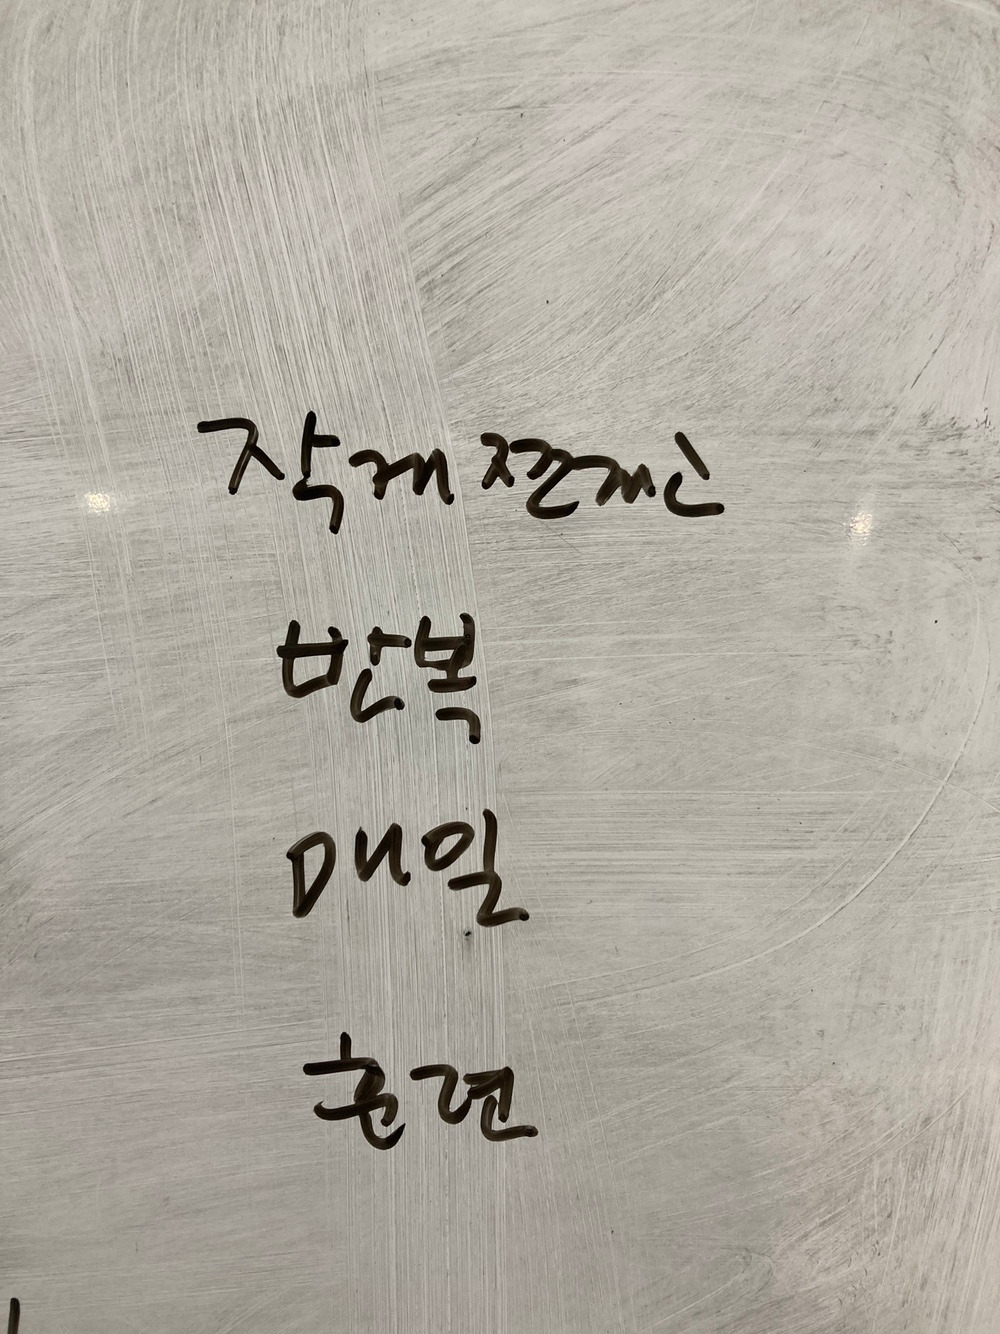 작게 쪼개기
반복
매일
훈련